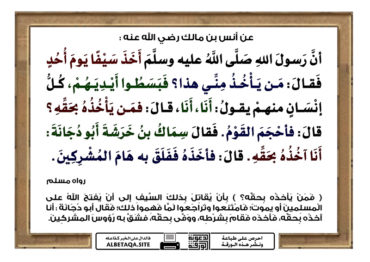 عن أنس بن مالك رضي الله عنه :
أنَّ رَسولَ اللهِ صَلَّى اللَّهُ عليه وسلَّمَ أَخَذَ سَيْفًا يَومَ أُحُدٍ
فَقالَ: مَن يَأْخُذُ مِنِّي هذا؟ فَبَسَطُوا أَيْدِيَهُمْ، كُلُّ
إنْسَانٍ منهمْ يقولُ: أَنَا، أَنَا، قالَ: فمَن يَأْخُذُهُ بحَقِّهِ؟
قالَ: فأحْجَمَ القَوْمُ. فَقالَ سِمَاكُ بنُ خَرَشَةَ أَبُو دُجَانَةَ:
أَنَا آخُذُهُ بحَقِّهِ. قالَ: فأخَذَهُ فَفَلَقَ به هَامَ المُشْرِكِينَ.
رواه مسلم
( فمَن يَأْخذه بحقِّه؟ ) بأن يُقاتل بذلك السَّيف إلى أن يَفتح اللهُ على
المسلمين أو يموت؛ فامتنعوا وتراجعوا لمَّا فهموا ذلك؛ فقال أبو دُجانة: أنا
آخذه بحقِّه، فأخذه فقام بشرطِه، ووفَّى بحقِّه، فشقَّ به رؤوس المشركين.
احرص على طباعة
ونشر هذه الورقة
فالدال على الخير كفاعله
ALBETAQA.SITE